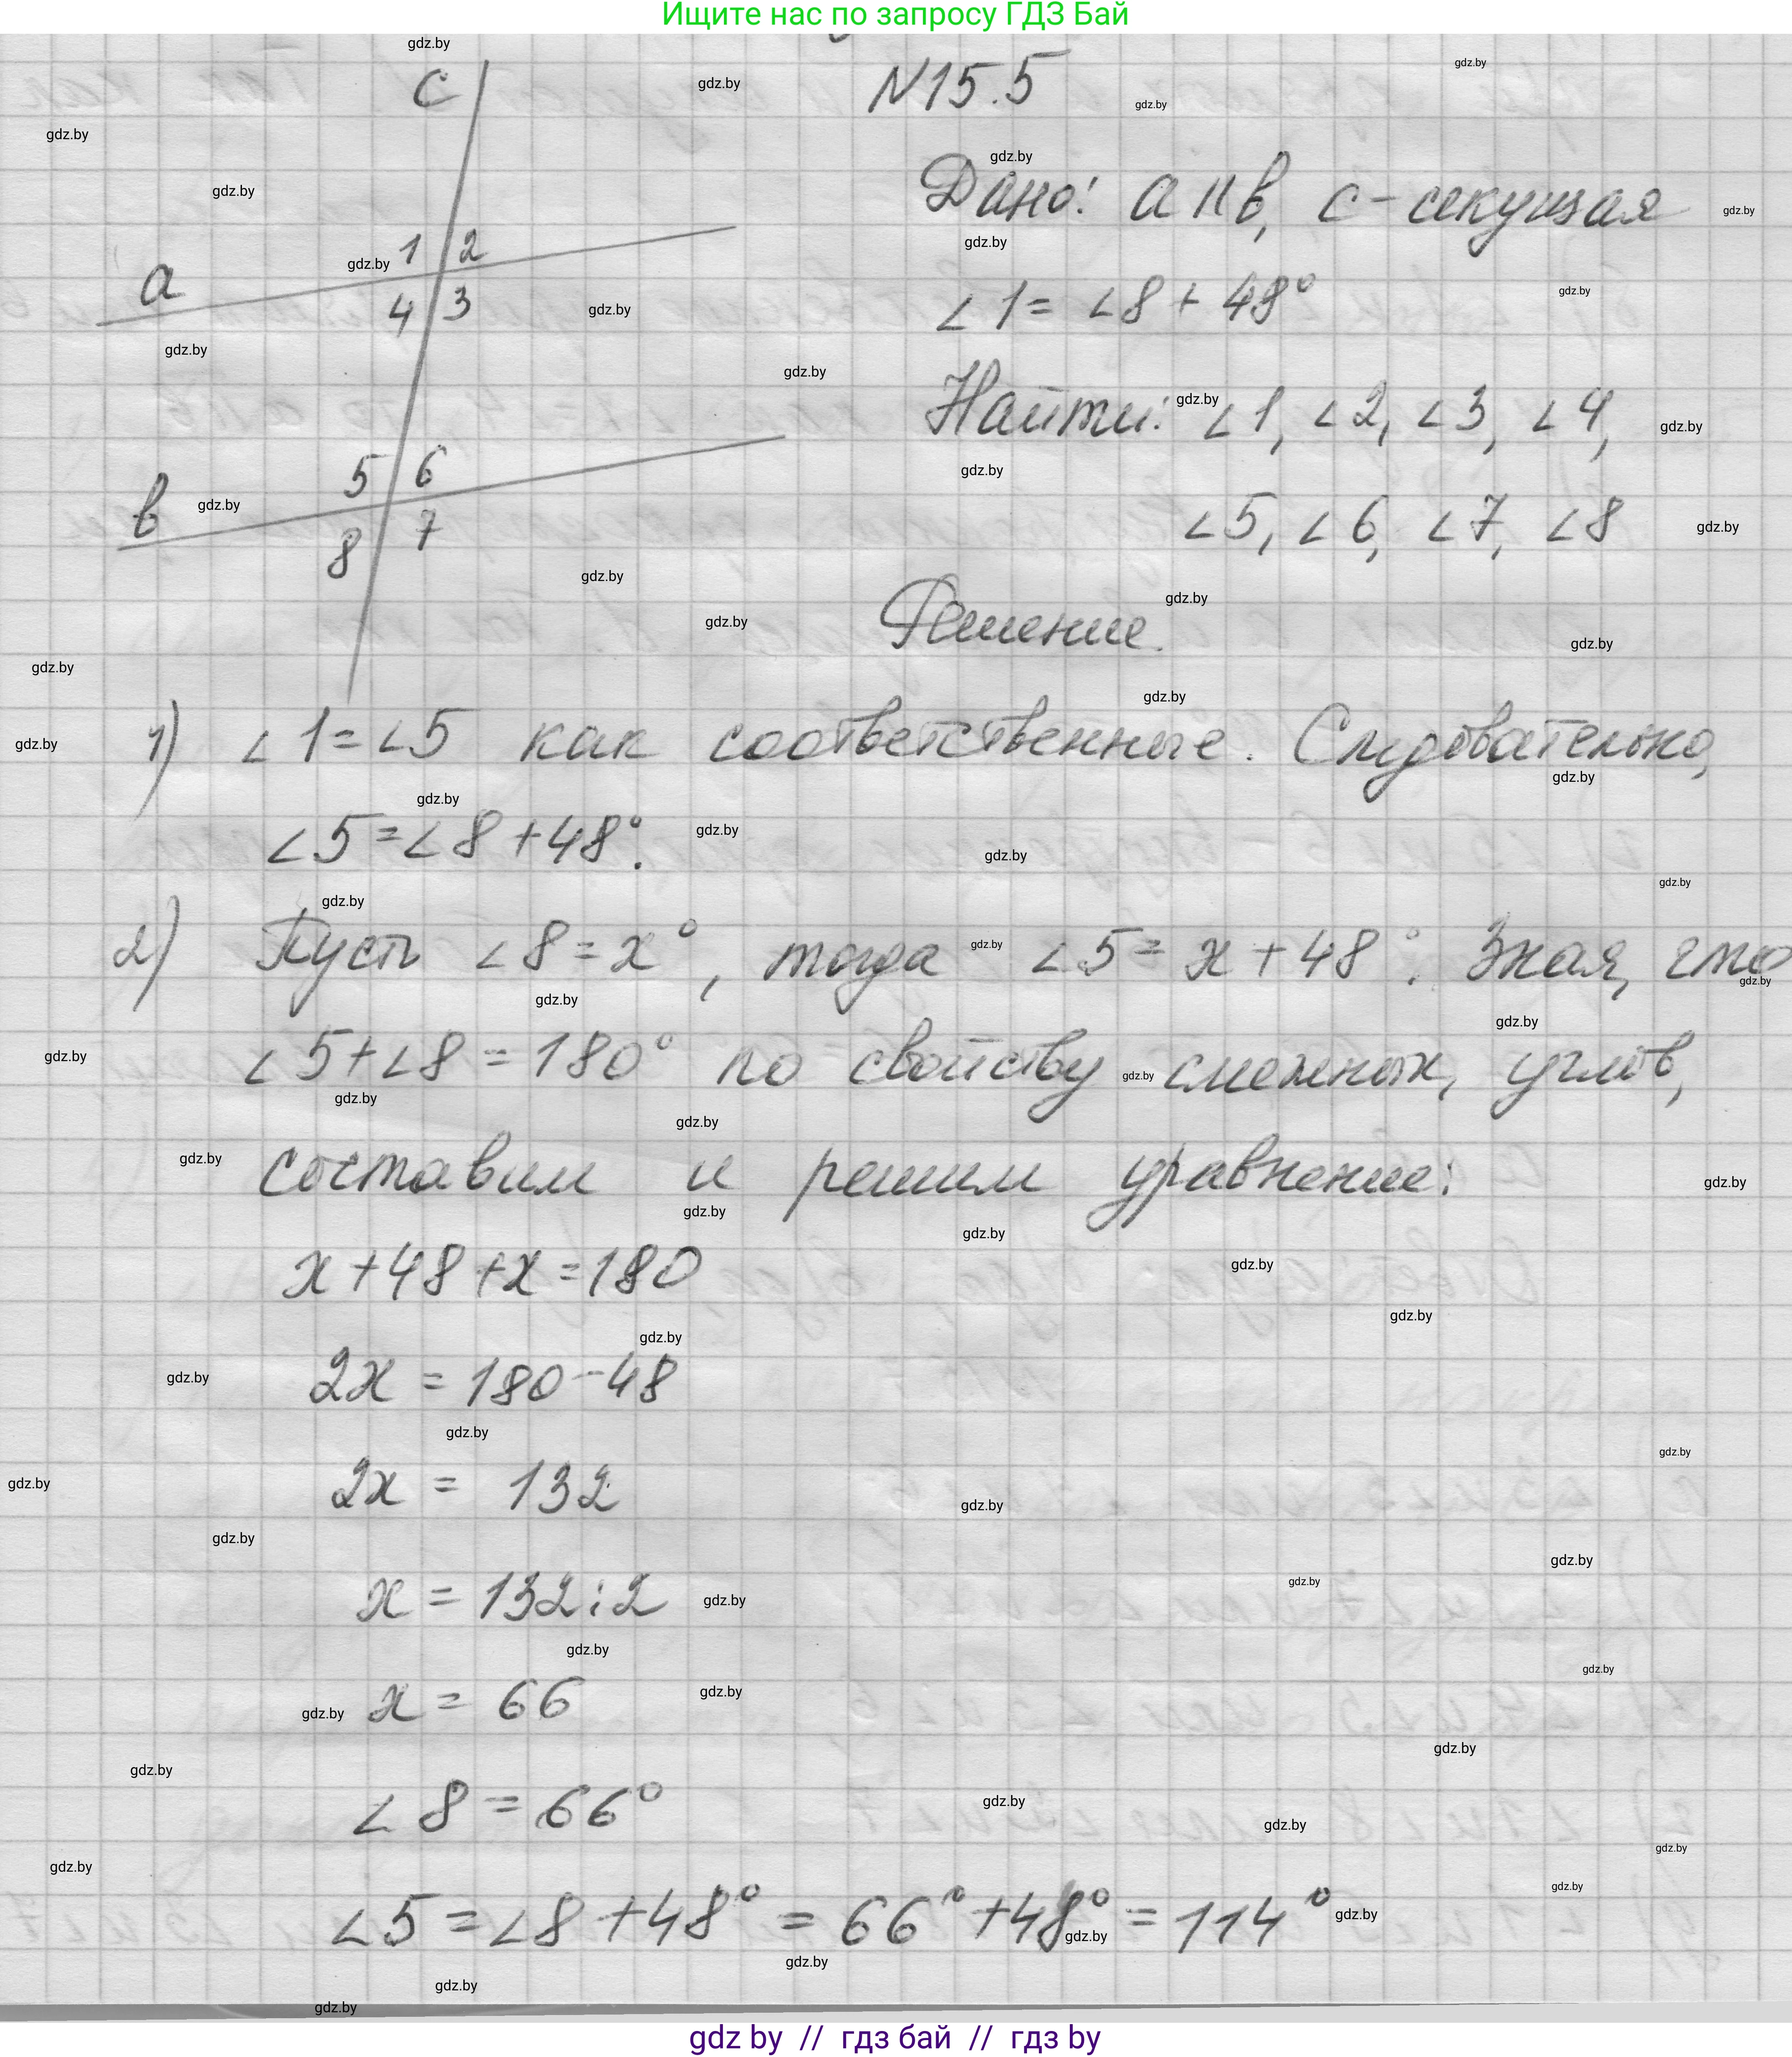 Ищите нас по запросу ГДЗ Бай
N15.5
c
a
b
1 2
4 3
5 6
8 7
Дано: a || b, c - секущая
∠1 = ∠8 + 48°
Найти: ∠1, ∠2, ∠3, ∠4,
∠5, ∠6, ∠7, ∠8
Решение.
1) ∠1 = ∠5 как соответственные. Следовательно,
∠5 = ∠8 + 48°.
2) Пусть ∠8 = x°, тогда ∠5 = x + 48°. Зная, что
∠5 + ∠8 = 180° по свойству смежных, углов,
составим и решим уравнение:
x + 48 + x = 180
2x = 180 - 48
2x = 132
x = 132 : 2
x = 66
∠8 = 66°
∠5 = ∠8 + 48° = 66° + 48° = 114°
gdz by // гдз бай // гдз by